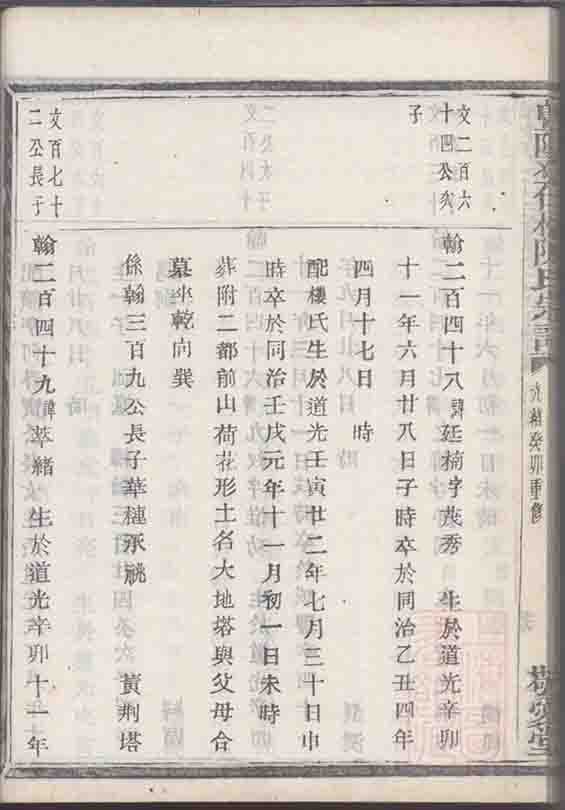 陳氏宗譜 光緒癸卯重修
文二百六
十四公次
子
翰二百四十八諱廷楠字茂秀 生於道光辛卯
十一年六月廿八日子時卒於同治乙丑四年
四月十七日 時
配樓氏生於道光壬寅廿二年七月三十日申
時卒於同治壬戌元年十一月初一日未時
葬附二都前山荷花形土名大地塔與父母合
墓坐乾向巽
係翰三百九公長子華槤承祧 黃荆塔
文百七十
二公長子
翰二百四十九諱萃緒 生於道光辛卯十一年